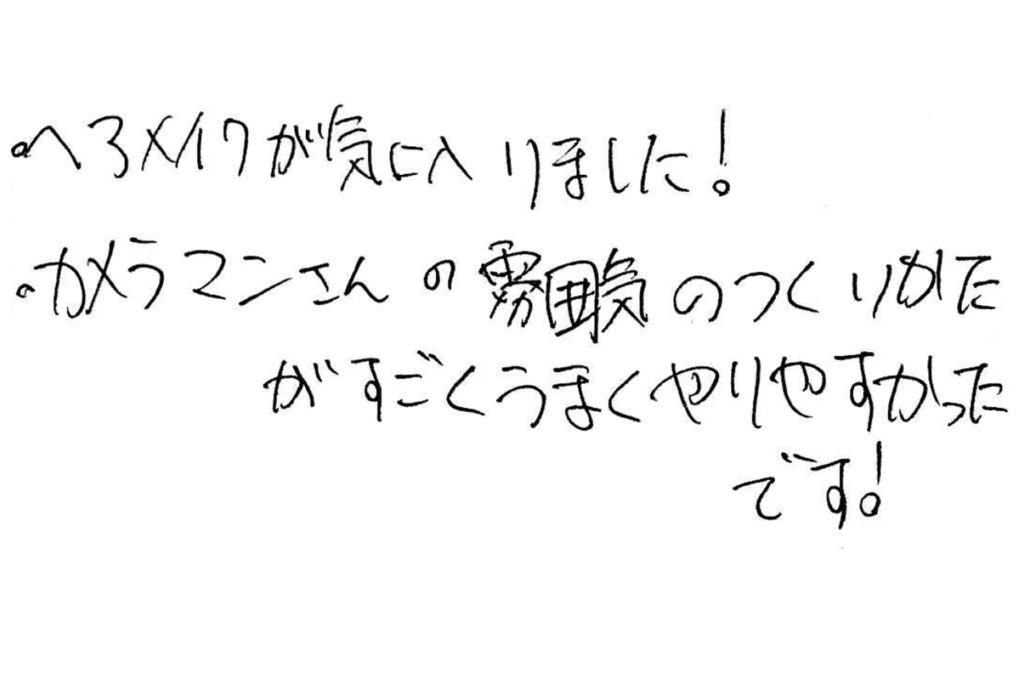 ・ヘアメイクが気に入りました!
・カメラマンさんの雰囲気のつくりかた
がすごくうまくやりやすかった
です!